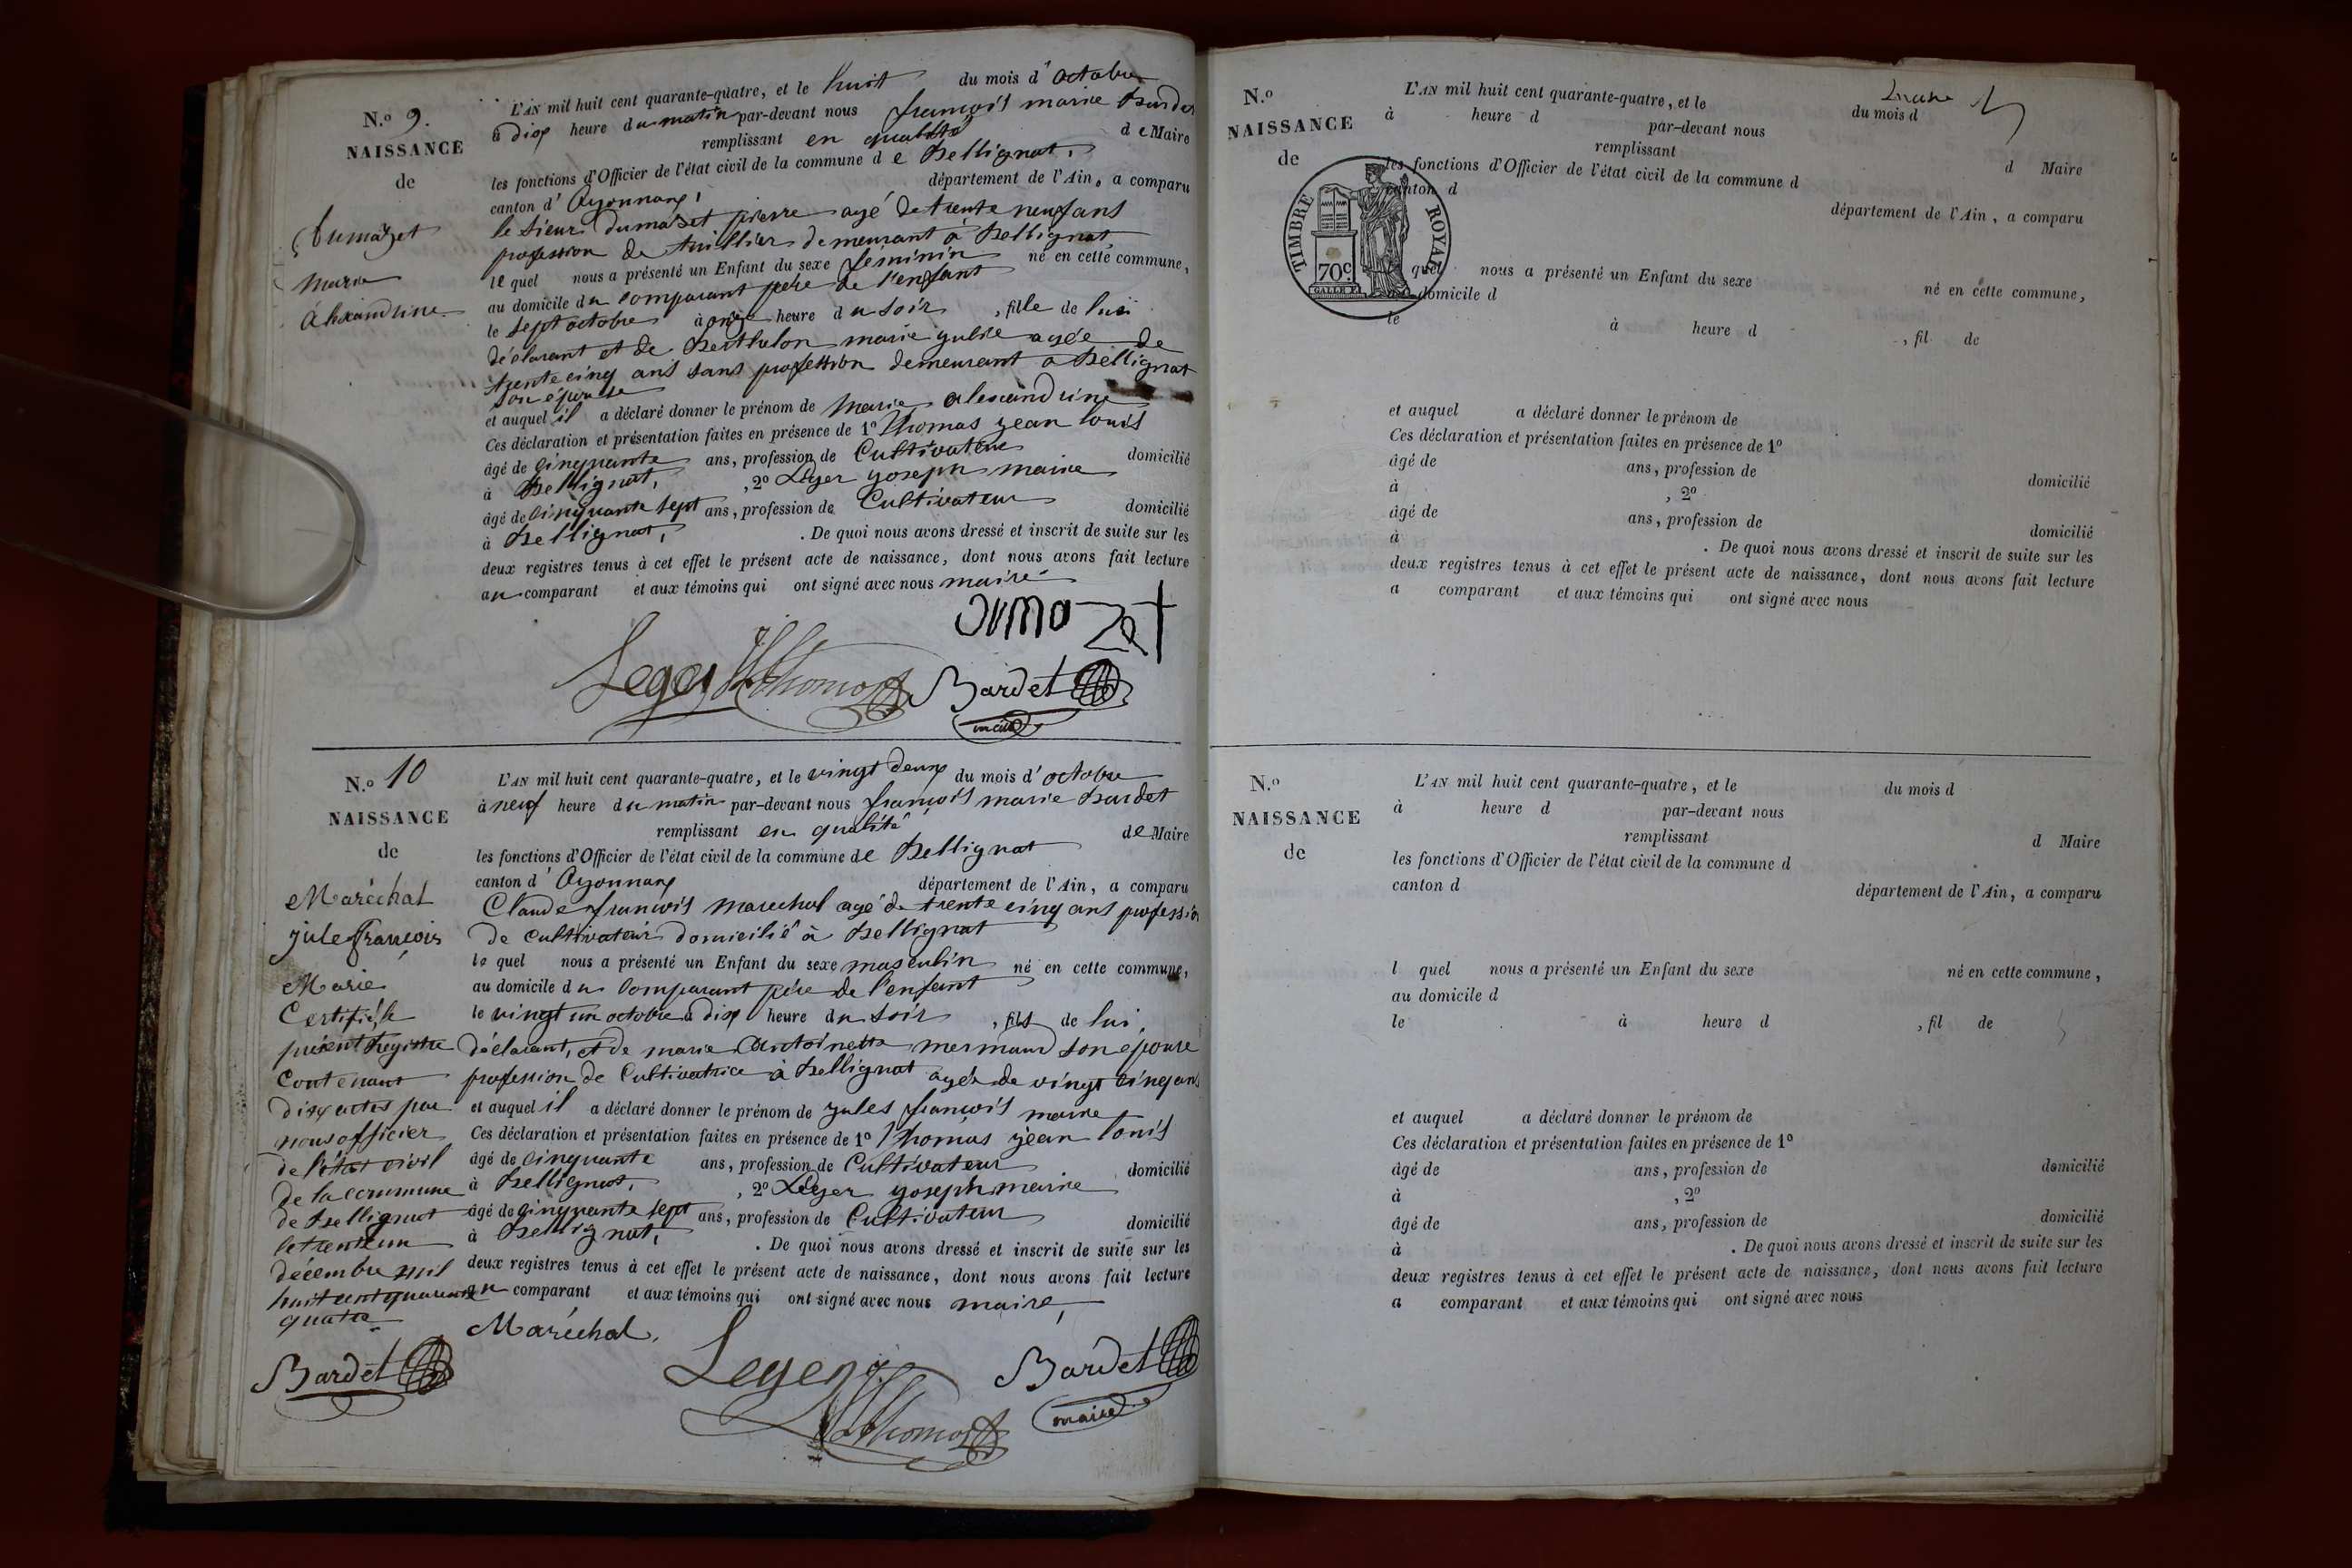 N.o 9.
NAISSANCE
de
Dumazet
Marie
Alexandrine
L'AN mil huit cent quarante-quatre, et le huit du mois d'octobre
à dix heure du matin par-devant nous françois marie Bardet
remplissant en qualité de Maire
les fonctions d'Officier de l'état civil de la commune de Bellignat,
canton d'Oyonnax, département de l'Ain, a comparu
le sieur Dumazet pierre agé de trente neuf ans
profession de tuillier demeurant à Bellignat
le quel nous a présenté un Enfant du sexe féminin né en cette commune,
au domicile du comparant père de l'enfant
le sept octobre à onze heure du soir, fille de lui
déclarant et de Berthelon marie julie agée de
trente cinq ans sans profession demeurant à Bellignat
son épouse
et auquel il a déclaré donner le prénom de Marie alexandrine
Ces déclaration et présentation faites en présence de 1o Thomas jean louis
âgé de cinquante ans, profession de Cultivateur domicilié
à Bellignat, , 2o Léger joseph marie
âgé de cinquante sept ans, profession de Cultivateur domicilié
à Bellignat, . De quoi nous avons dressé et inscrit de suite sur les
deux registres tenus à cet effet le présent acte de naissance, dont nous avons fait lecture
au comparant et aux témoins qui ont signé avec nous maire
Dumazet
Leger Thomas Bardet
maire
N.o 10
NAISSANCE
de
Maréchal
jule françois
Marie
Certifié le
présent Registre
Contenant
dix actes par
nous officier
de l'état civil
de la commune
de Bellignat
le trente un
décembre mil
huit cent quarante
quatre
Bardet
L'AN mil huit cent quarante-quatre, et le vingt deux du mois d'octobre
à neuf heure du matin par-devant nous françois marie Bardet
remplissant en qualité de Maire
les fonctions d'Officier de l'état civil de la commune de Bellignat
canton d'Oyonnax département de l'Ain, a comparu
Claude françois marechal agé de trente cinq ans profession
de cultivateur domicilié à Bellignat
le quel nous a présenté un Enfant du sexe masculin né en cette commune,
au domicile du comparant père de l'enfant
le vingt un octobre à dix heure du soir, fils de lui,
déclarant, et de marie Antoinette mermand son épouse
profession de Cultivatrice à Bellignat agée de vingt cinq ans
et auquel il a déclaré donner le prénom de jules françois marie
Ces déclaration et présentation faites en présence de 1o Thomas jean louis
âgé de cinquante ans, profession de Cultivateur domicilié
à Bellignat, , 2o Léger joseph marie
âgé de cinquante sept ans, profession de Cultivateur domicilié
à Bellignat, . De quoi nous avons dressé et inscrit de suite sur les
deux registres tenus à cet effet le présent acte de naissance, dont nous avons fait lecture
au comparant et aux témoins qui ont signé avec nous maire,
Maréchal. Leger Bardet
Thomas maire
N.o
NAISSANCE
de
TIMBRE ROYAL
70c.
L'AN mil huit cent quarante-quatre, et le du mois d
à heure d par-devant nous
remplissant d Maire
les fonctions d'Officier de l'état civil de la commune d
canton d département de l'Ain, a comparu
quel nous a présenté un Enfant du sexe né en cette commune,
domicile d
le à heure d , fil de
et auquel a déclaré donner le prénom de
Ces déclaration et présentation faites en présence de 1o
âgé de ans, profession de domicilié
à , 2o
âgé de ans, profession de domicilié
à . De quoi nous avons dressé et inscrit de suite sur les
deux registres tenus à cet effet le présent acte de naissance, dont nous avons fait lecture
a comparant et aux témoins qui ont signé avec nous
N.o
NAISSANCE
de
L'AN mil huit cent quarante-quatre, et le du mois d
à heure d par-devant nous
remplissant d Maire
les fonctions d'Officier de l'état civil de la commune d
canton d département de l'Ain, a comparu
l quel nous a présenté un Enfant du sexe né en cette commune,
au domicile d
le à heure d , fil de
et auquel a déclaré donner le prénom de
Ces déclaration et présentation faites en présence de 1o
âgé de ans, profession de domicilié
à , 2o
âgé de ans, profession de domicilié
à . De quoi nous avons dressé et inscrit de suite sur les
deux registres tenus à cet effet le présent acte de naissance, dont nous avons fait lecture
a comparant et aux témoins qui ont signé avec nous